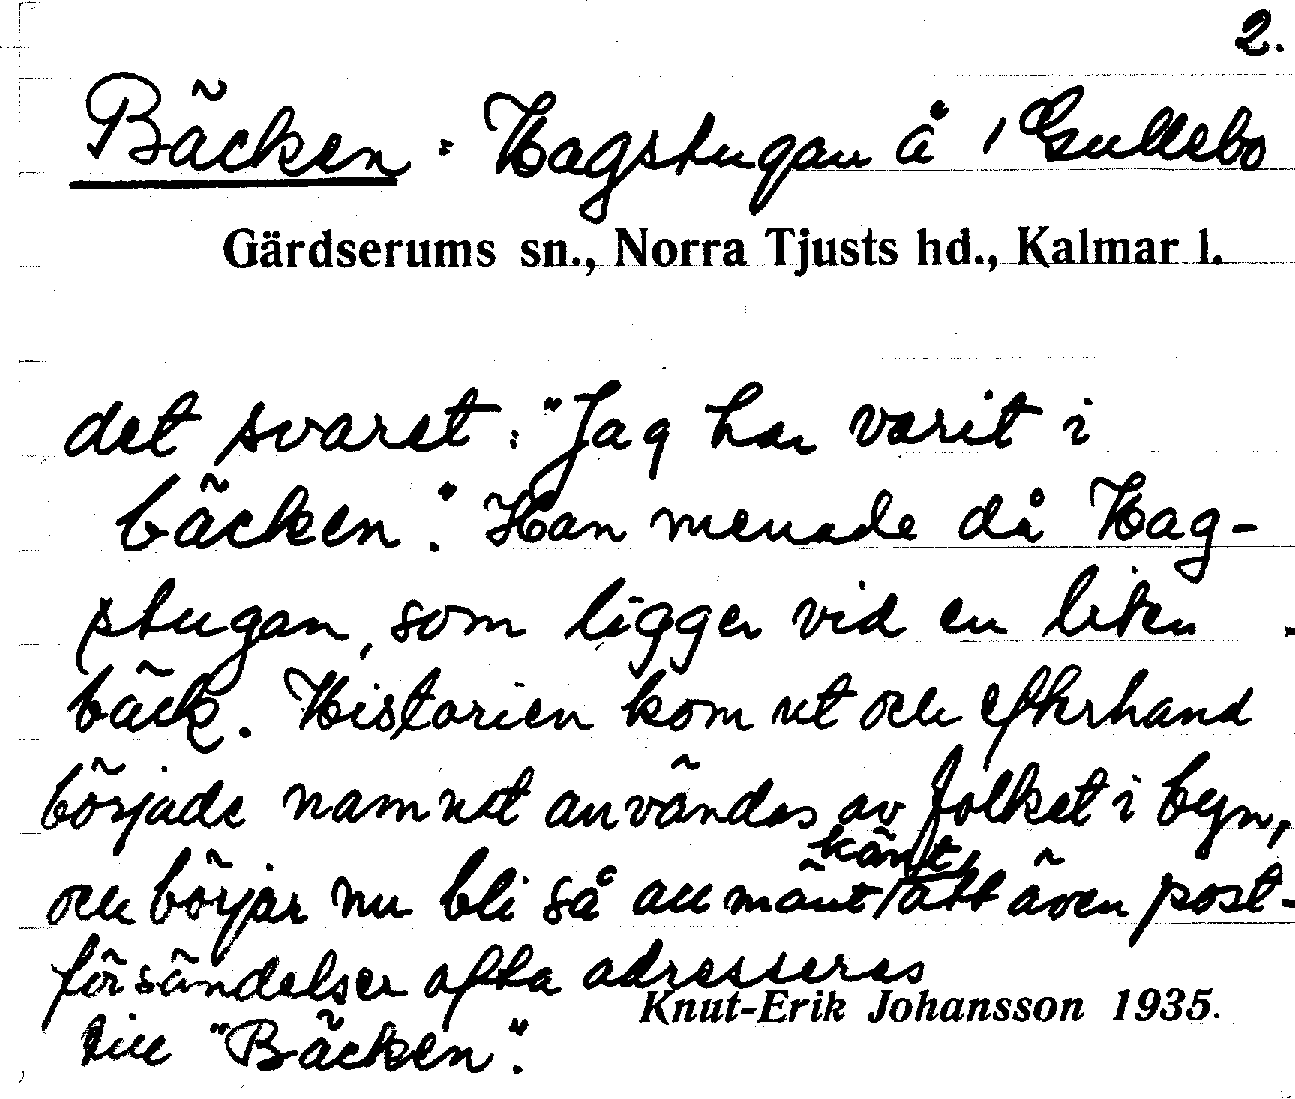 2.
Bäcken = Hagstugan å, Gullebo
Gärdserums sn., Norra Tjusts hd., Kalmar l.
det svaret: "Jag har varit i
bäcken". Han menade då Hag-
stugan, som ligger vid en liten
bäck. Historien kom ut och efterhand
började namnet användas av folket i byn,
och börjar nu bli så allmänt känt, att även post-
försändelser ofta adresseras
Knut-Erik Johansson 1935.
till "Bäcken".